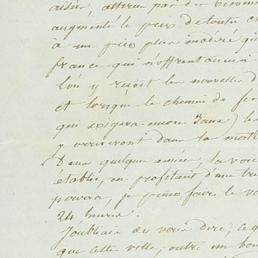 aidier, attirée par des
augmenté le prix de toute ch
à un prix plus modéré qu
france qui n'offrent aucu
l'on y reçoit les nouvelles d
et lorsque le chemin de fer
qui exigera encore 3 ans) le
y arriveront dans la moiti
Dans quelques années, la voie
établie, en profitant d'une tra
pourra, je pense faire le vo
24 heures.
J'oubliais de vous dire, ce q
que cette ville, outre un bon